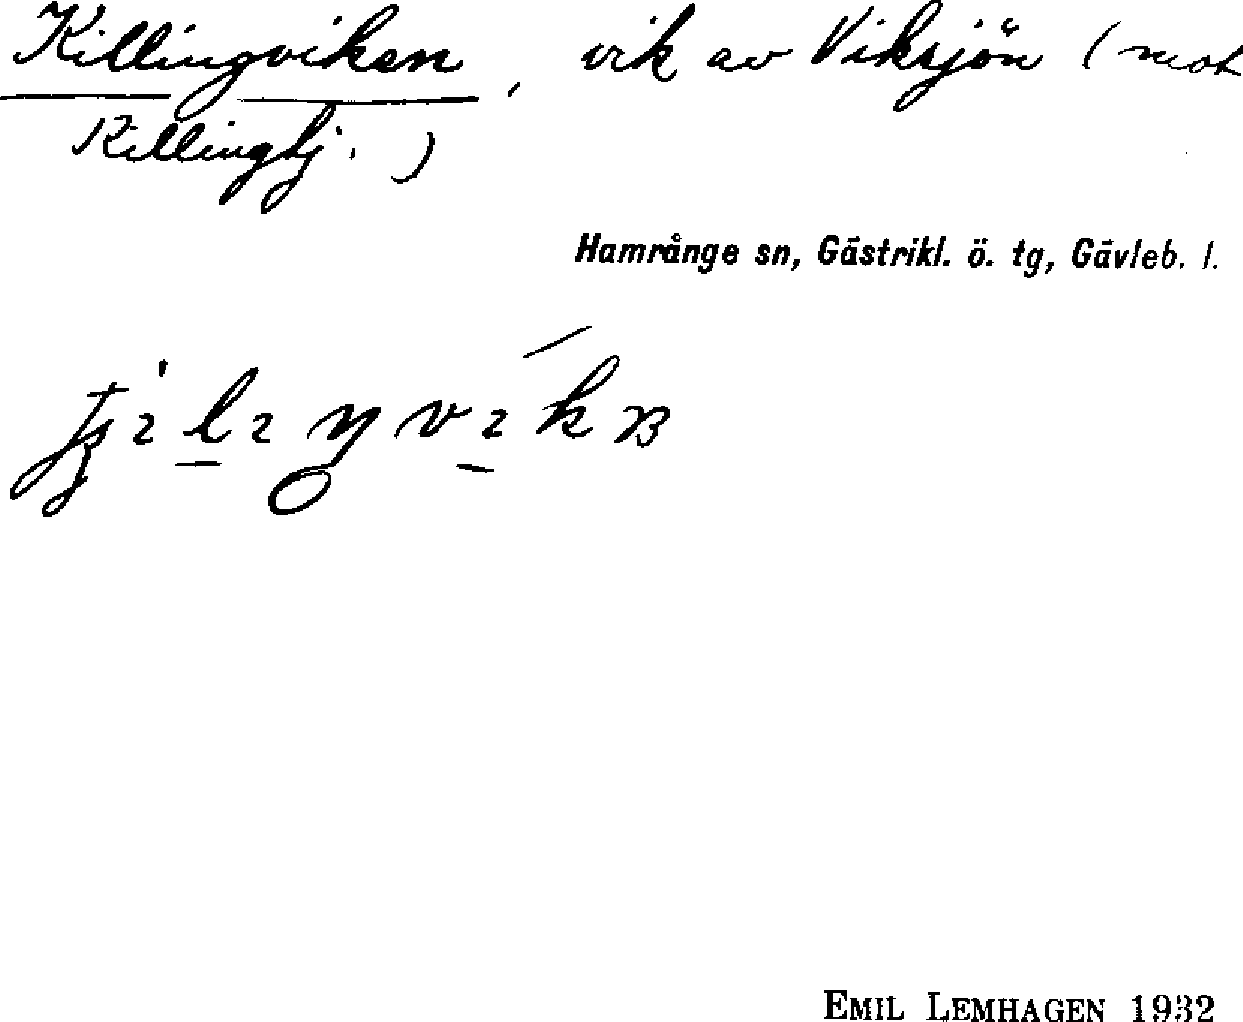 Killingviken, vik av Viksjön (mot
Killingtj.)
Hamrånge sn, Gästrikl. ö. tg, Gävleb. l.
EMIL LEMHAGEN 1932